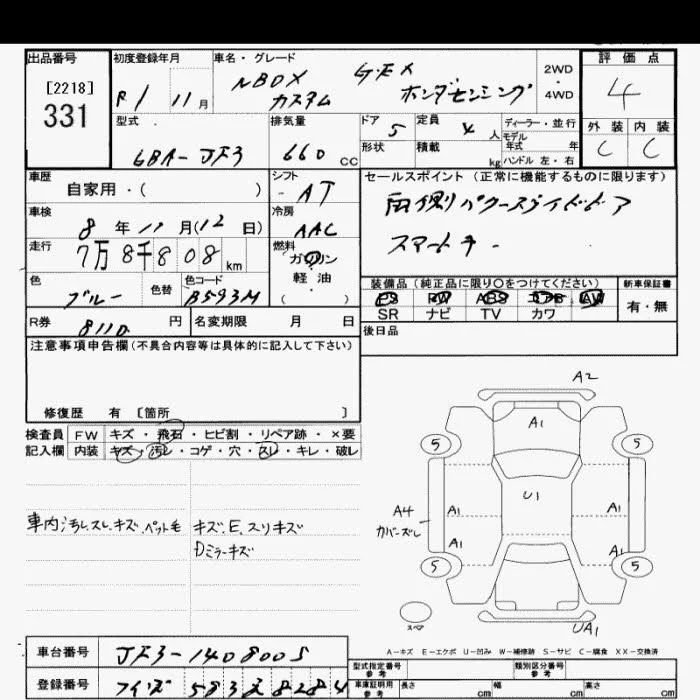 出品番号 初度登録年月 車名・グレード 評価点
[2218] 331 R1 11月 NBOX カスタム G・EX ホンダセンシング 2WD・4WD 4
型式 排気量 ドア 定員 ディーラー・並行 外装 内装
6BA-JF3 660 CC 5 4人 モデル年式 年 C C
形状 積載 kg ハンドル 左・右
車歴 シフト セールスポイント(正常に機能するものに限ります)
自家用・( ) AT 両側パワースライドドア
車検 冷房
8年11月(12日) AAC スマートキー
走行 燃料
7万8千808km ガソリン
色 色替 色コード 軽・油
ブルー B593M ( ・ )
装備品(純正品に限り〇をつけてください) 新車保証書
PS PW ABS エアB AW 有・無
SR ナビ TV カワ
R券 8110円 名変期限 月 日 後日品
注意事項申告欄(不具合内容等は具体的に記入して下さい)
修復歴 有 [箇所 ]
検査員 FW キズ・飛石・ヒビ割・リペア跡・×要
記入欄 内装 キズ・汚レ・コゲ・穴・スレ・キレ・破レ
車内汚レ、スレ、キズ、ペット毛
キズ、E、スリキズ
Dミラーキズ
A2
A1
5 5
U1
A4 A1 A1
カバーズレ
A1 A1
5 5
スペア
UA1
A-キズ E-エクボ U-凹み W-補修跡 S-サビ C-腐食 XX-交換済
車台番号 JF3-1408005
登録番号 583 8284
型式指定番号 参考 類別区分番号 参考
車庫証明用 参考 長さ cm 幅 cm 高さ cm